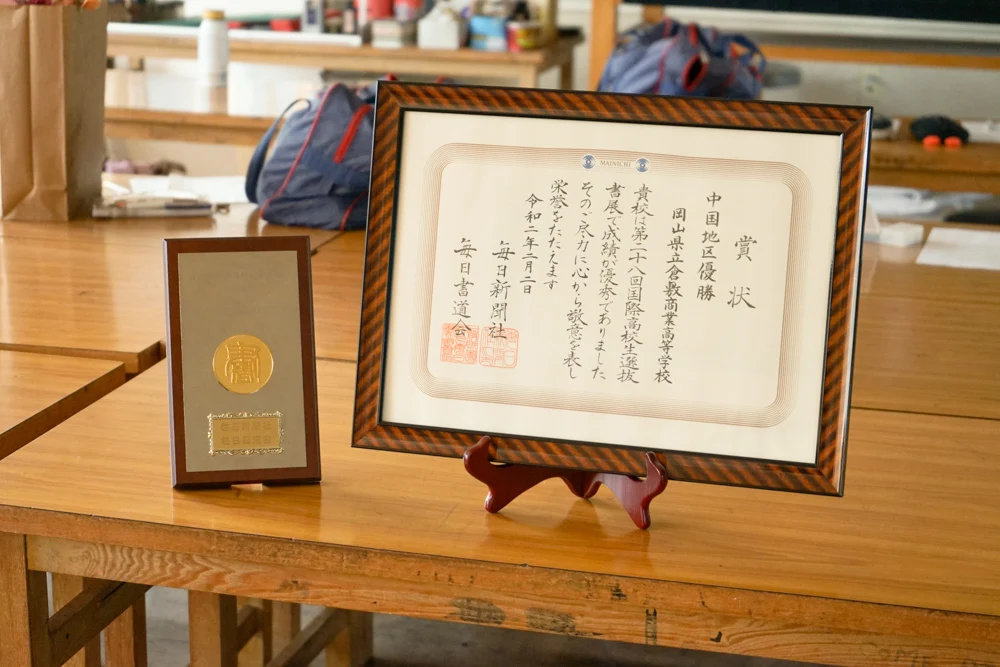 MAINICHI
賞状
中国地区優勝
岡山県立倉敷商業高等学校
貴校は第二十八回国際高校生選抜
書展で成績が優秀でありました
そのご尽力に心から敬意を表し
栄誉をたたえます
令和二年二月二日
毎日新聞社
毎日書道会